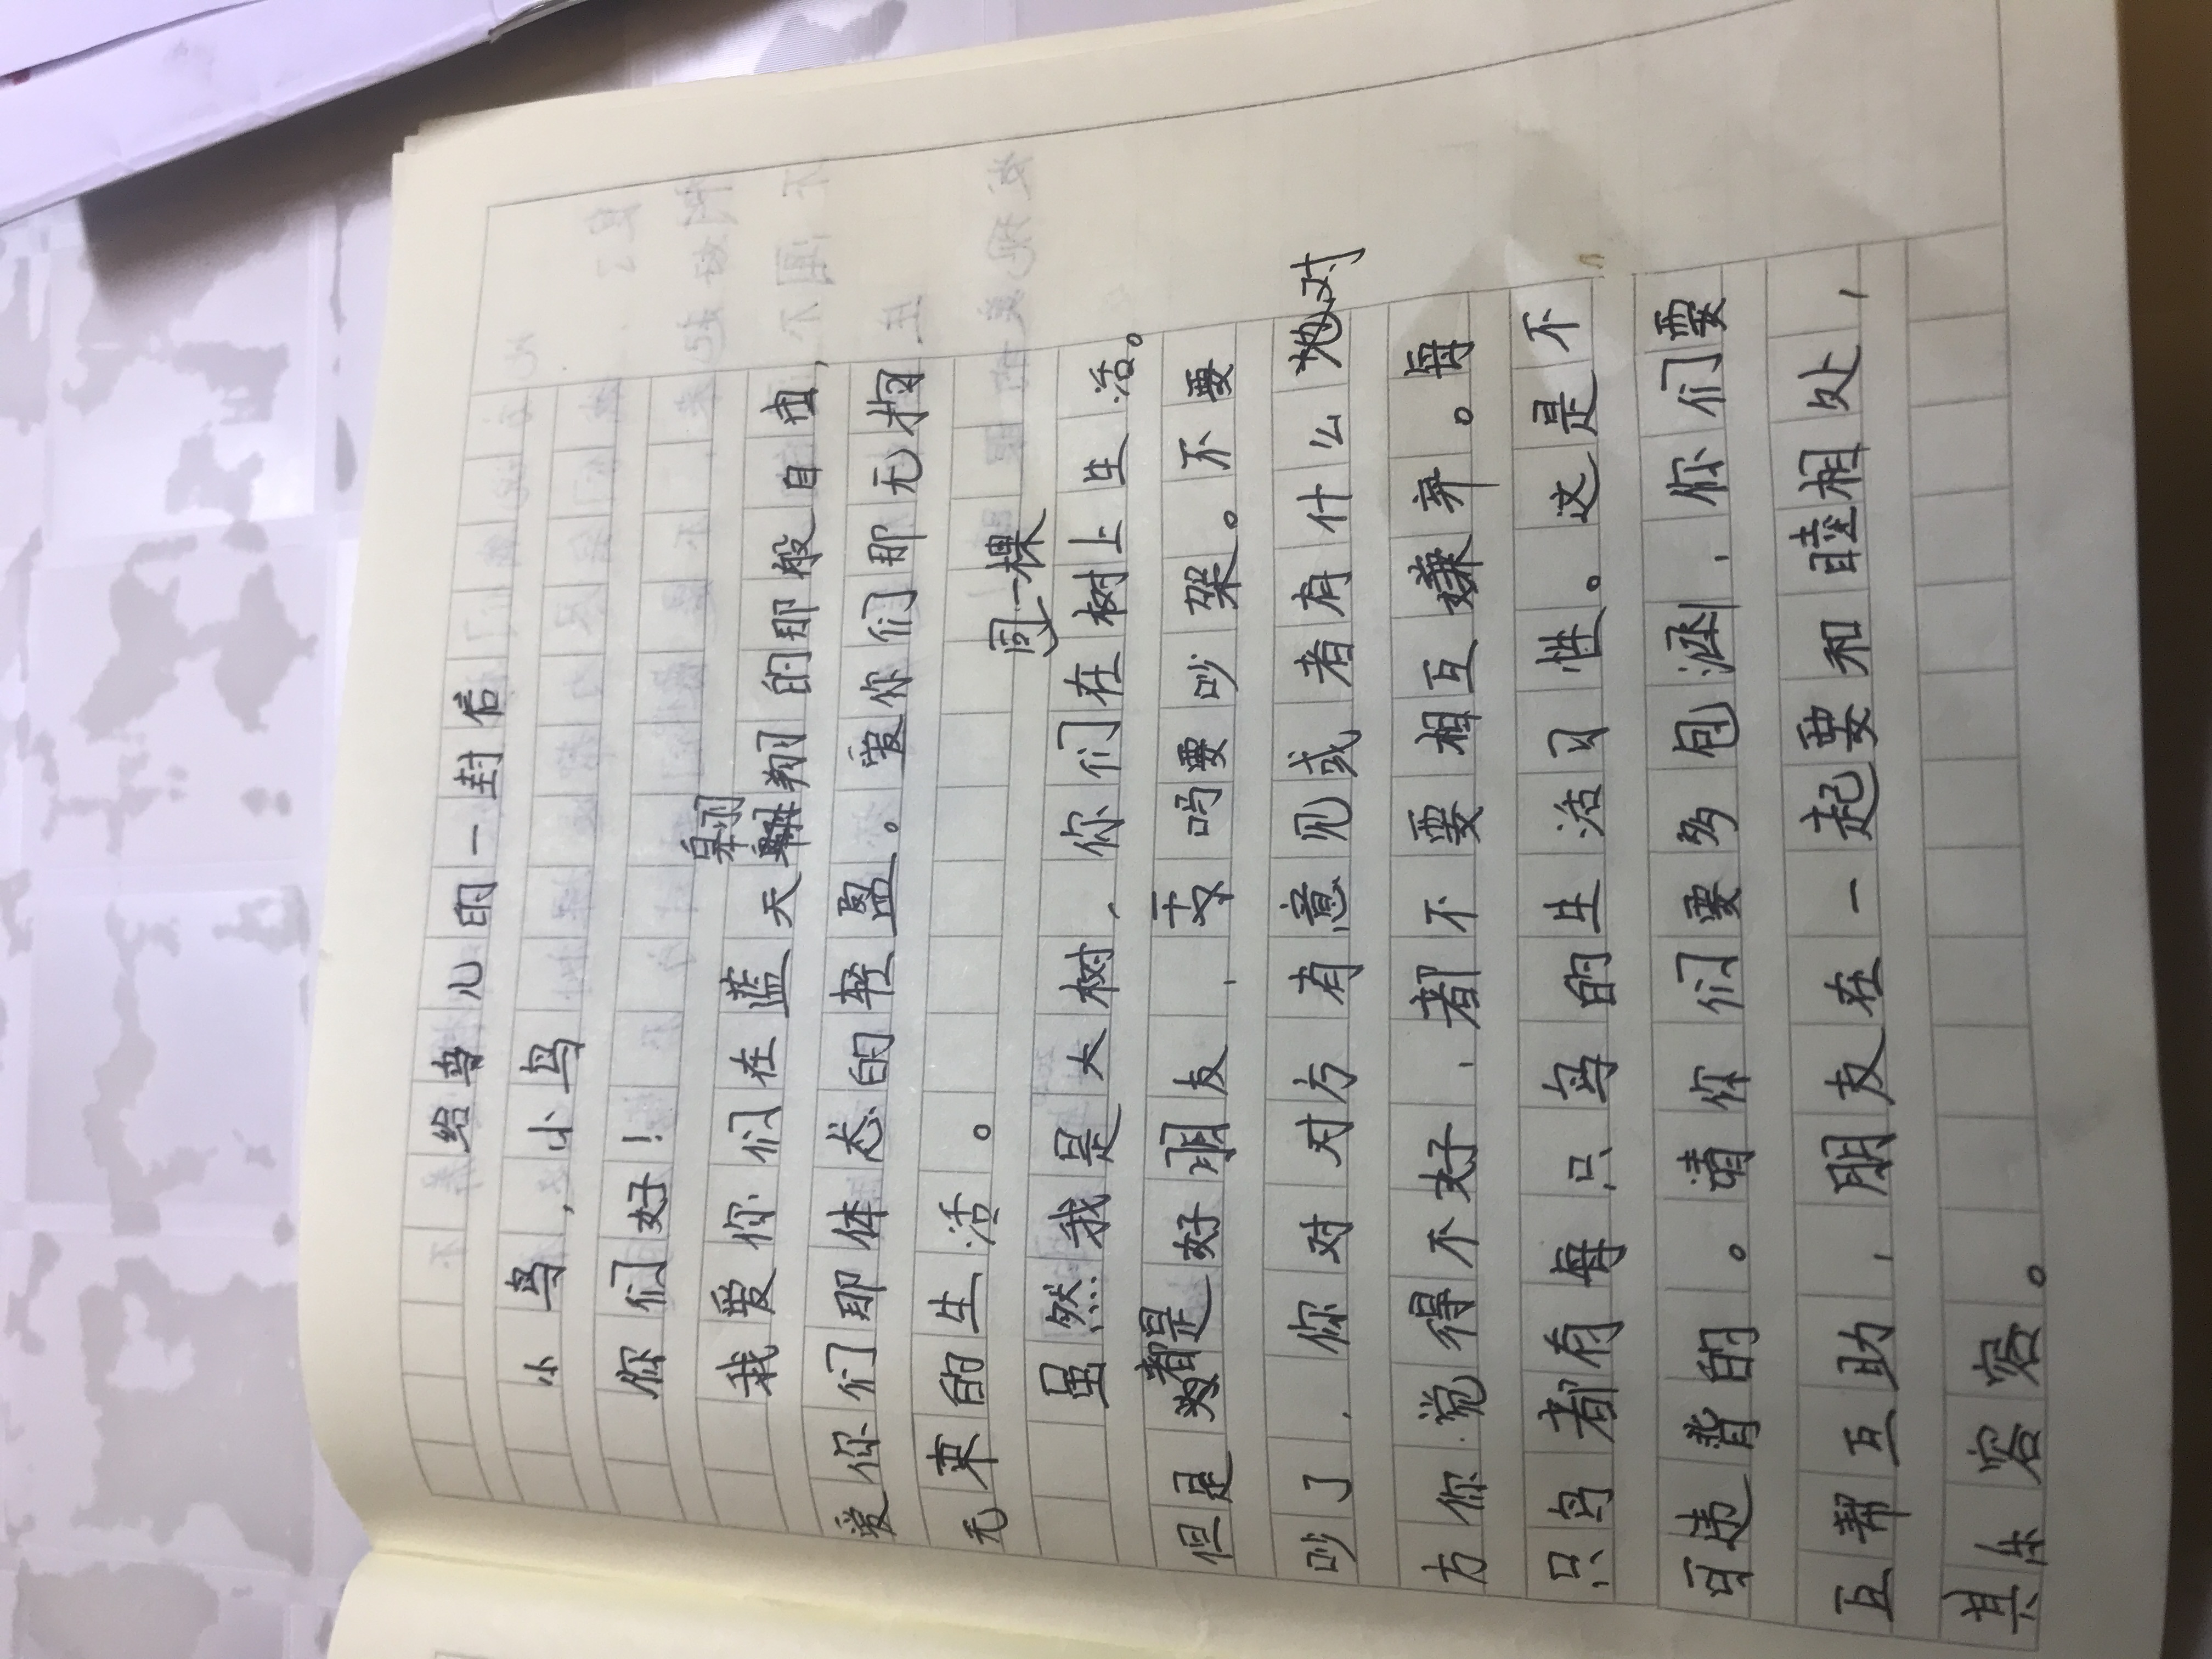 给鸟儿的一封信
小鸟，小鸟
你们好！
我爱你们在蓝天翱翔的那般自由，
爱你们那体态的轻盈。爱你们那无拘
无束的生活。
虽然我是大树，你们在同一棵树上生活。
但是都是好朋友，要吵架。不要
吵了，你对对方有意见或者有什么地对
方你觉得不好，都不要相互嫌弃。每
只鸟都有每只鸟的生活习性。这是不
可违背的。请你们要多包涵，你们要
互帮互助，朋友在一起要和睦相处，
其乐容容。